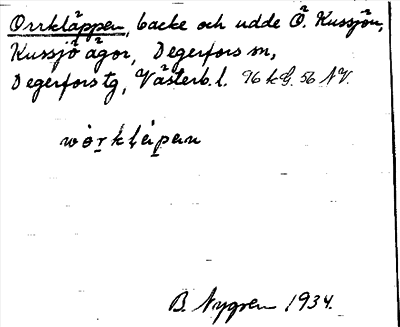 Orrkläppen, backe och udde Ö. Kussjön,
Kussjö ägor, Degerfors sn,
Degerfors tg, Västerb. l. 96 kG. 56 NV.
B. Nygren 1934.